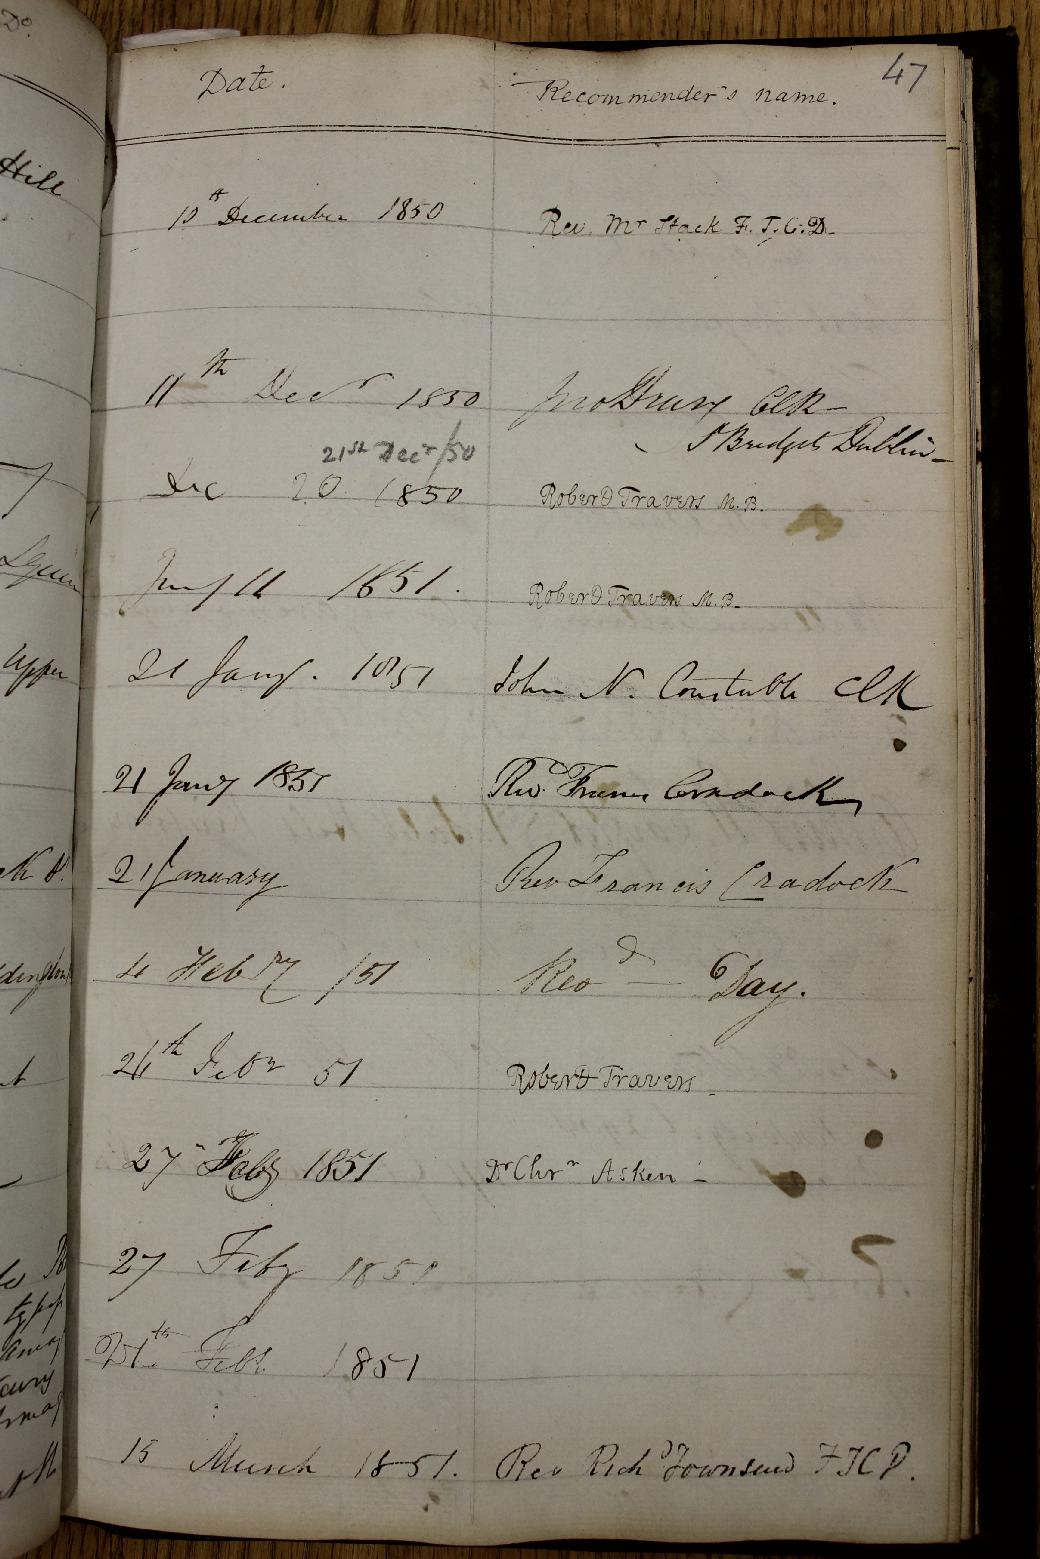 Do.
47
Date. Recommender's name.
Hill
10th December 1850 Rev. Mr Stack F. T. C. D.
11th Decr 1850 Jno Drury Clk
St Bridgets Dublin
21st Decr/50
Dec 20 1850 Robert Travers M.B.
Jany 11 1851. Robert Travers M.B.
Upper
21 Jany. 1851 John N. Constable Clk
21 Jany 1851 Revd. Francis Cradock
21 January Rev Francis Cradock
4 Febry /51 Revd — Day.
26th Febr 51 Robert Travers
27 Feby 1851 Dr Chrr Asken
27 Feby 1851
Feb. 1851
15 March 1851. Rev Richd Townsend F T C D.